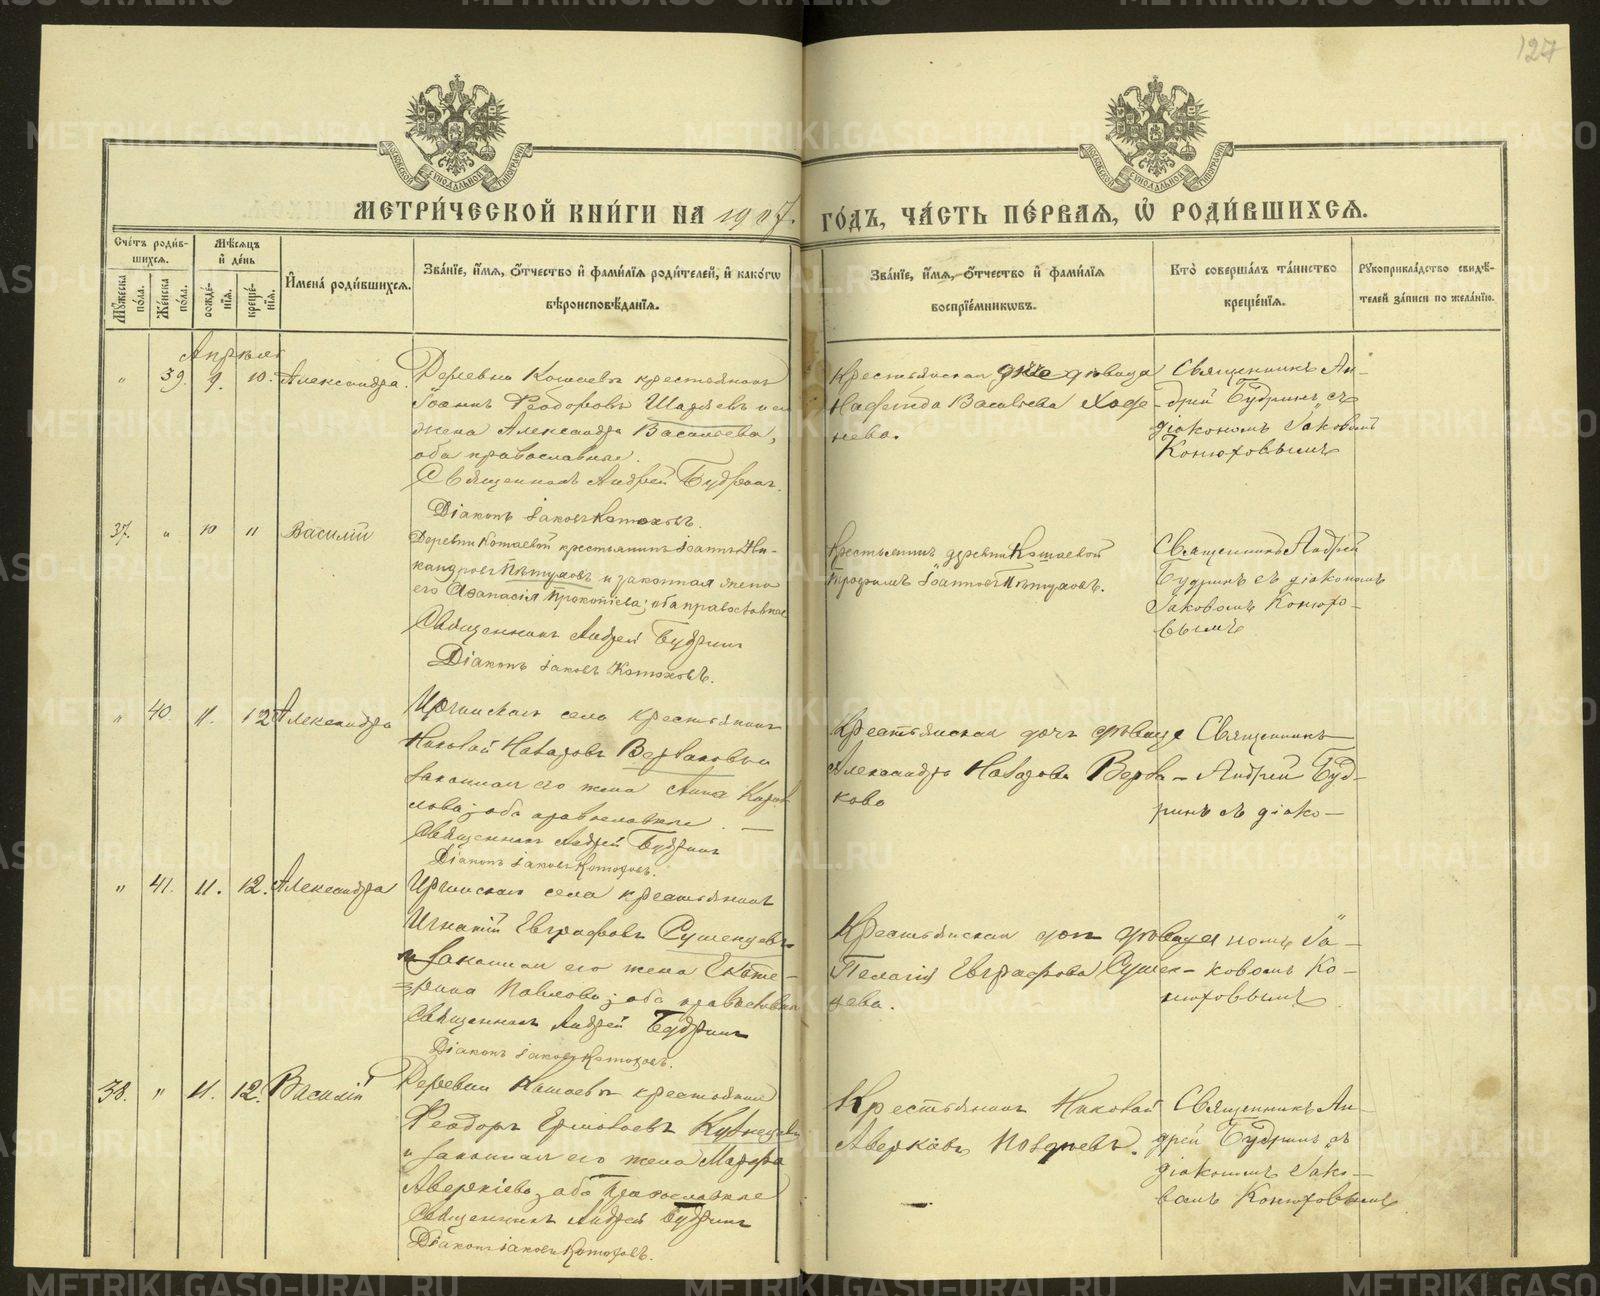 127
МЕТРИ́ЧЕСКОЙ КНИ́ГИ НА 1907. ГО́ДЪ, ЧА́СТЬ ПЕ́РВАЯ, Ѡ҆ РОДИ́ВШИХСЯ.
Сче́тъ роди́в-
шихся.
Мѣ́сяцъ
и҆ де́нь
Мꙋ́жеска по́ла.
Же́нска по́ла.
рожде́-
нїя.
креще́-
нїя.
И҆мена́ роди́вшихся.
Зва́нїе, и҆́мя, о҆́тчество и҆ фами́лїя роди́телей, и҆ како́гѡ
вѣроисповѣ́данїя.
Зва́нїе, и҆́мя, о҆́тчество и҆ фами́лїя
воспрїе́мникѡвъ.
Кто̀ соверша́лъ та́инство
креще́нїя.
Рꙋкоприкла́дство свидѣ́-
телей за́писи по жела́нїю.
Апрѣль
" 39. 9. 10. Александра.
Деревни Кошаевы крестьянинъ
Іоаннъ Ѳеодоровъ и
жена Александра Васильева,
оба православные.
Священникъ Андрей Будринъ.
Діаконъ Іаковъ Конюховъ.
Крестьянская дѣвица
Васильева
нева.
Священникъ Ан-
дрей Будринъ съ
діакономъ Іаковомъ
Конюховымъ
37. " 10 11 Василій
Деревни Кошаевой крестьянинъ Іоаннъ Ни-
кандровъ Пѣтуховъ и законная жена
его Аѳанасія Прокопіева; оба православные
Священникъ Андрей Будринъ
Діаконъ Іаковъ Конюховъ.
Крестьянинъ деревни Кошаевой
Трофимъ Іоанновъ Пѣтуховъ.
Священникъ Андрей
Будринъ съ діакономъ
Іаковомъ Конюхо-
вымъ
" 40. 11. 12 Александра
Иргинскаго села крестьянинъ
Николай Назаровъ Верзаковъ и
законная его жена Анна
оба православные
Священникъ Андрей Будринъ
Діаконъ Іаковъ Конюховъ.
Крестьянская дочь дѣвица
Александра Назарова Верза-
кова
Священникъ
Андрей Буд-
ринъ съ діако-
" 41. 11. 12. Александра
Иргинскаго села крестьянинъ
Игнатій Евграфовъ Сушенцевъ
и законная его жена Екате-
рина Павлова; оба православные
Священникъ Андрей Будринъ
Діаконъ Іаковъ Конюховъ.
Крестьянская дочь дѣвица
Пелагія Евграфова Сушен-
цева.
номъ Іа-
ковомъ Ко-
нюховымъ
38. " 11. 12. Василій
Деревни Кошаевы крестьянинъ
Ѳеодоръ Ермолаевъ Кузнецовъ
и законная его жена Марѳа
Аверкіева; оба православные
Священникъ Андрей Будринъ
Діаконъ Іаковъ Конюховъ.
Крестьянинъ Николай
Аверкіевъ Поздеевъ.
Священникъ Ан-
дрей Будринъ съ
діакономъ Іако-
вомъ Конюховымъ